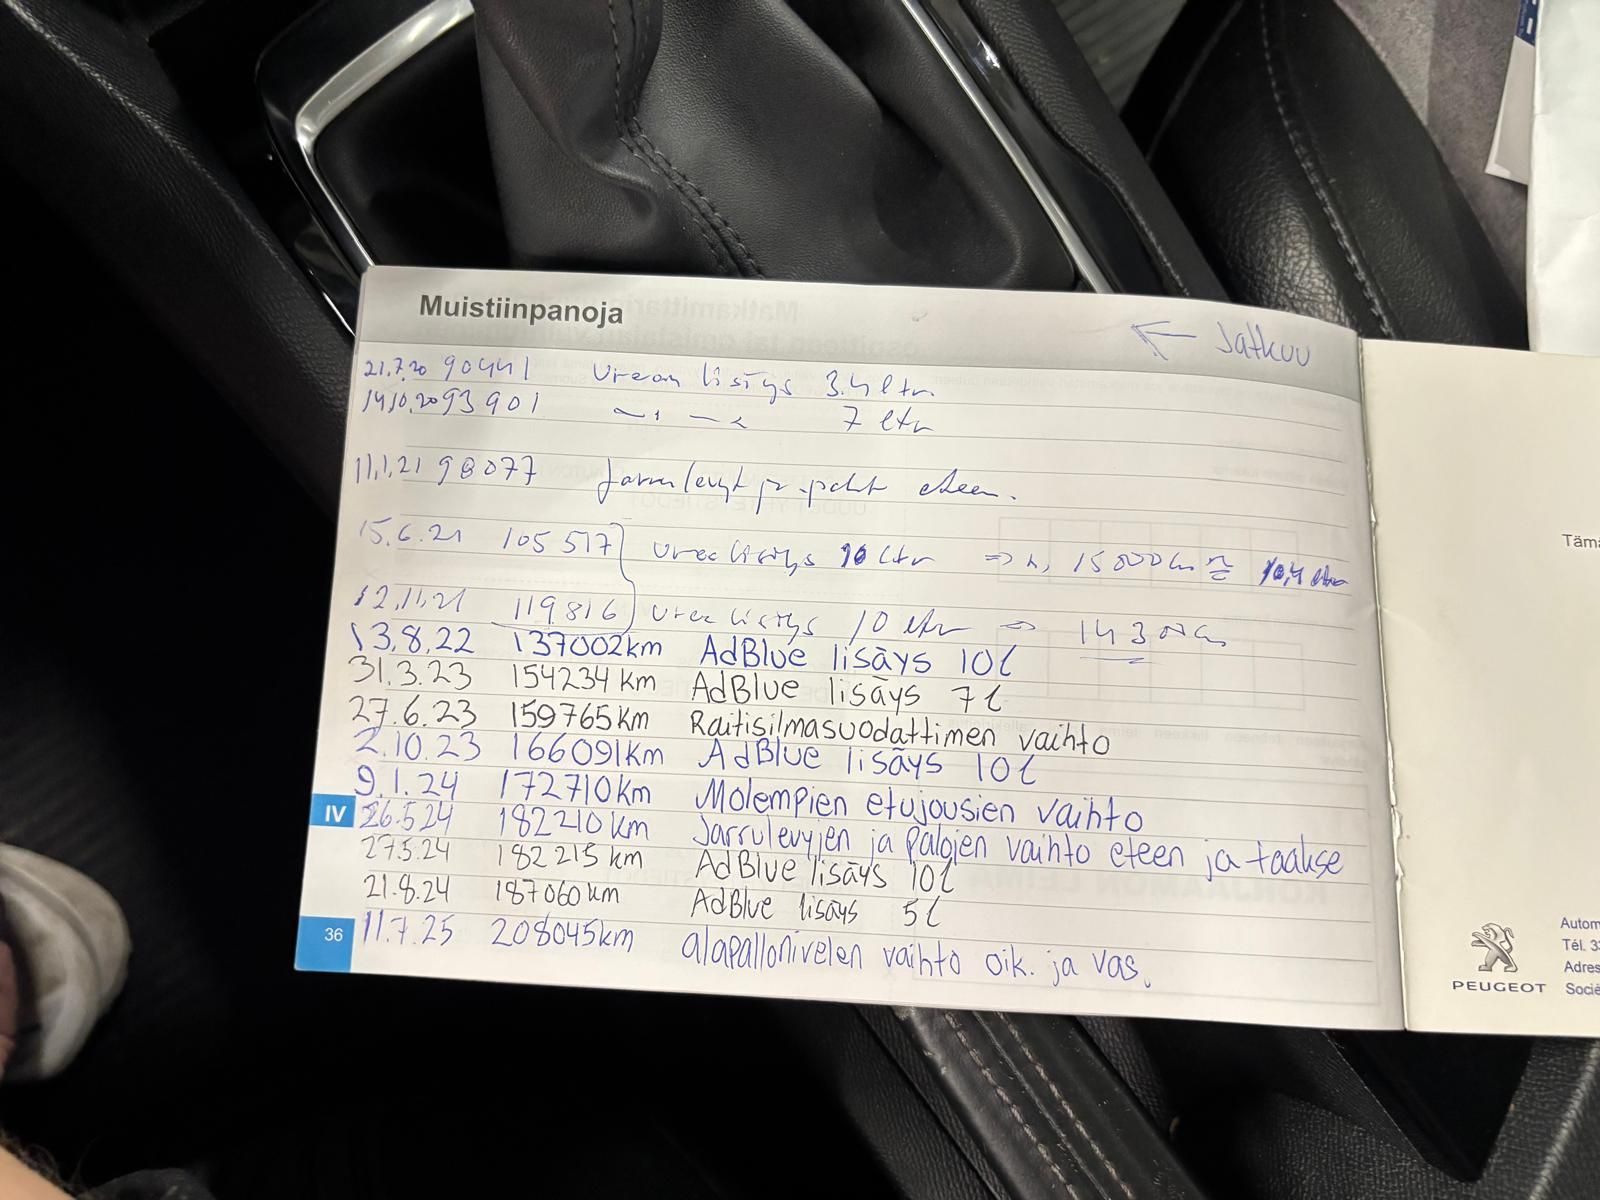 Muistiinpanoja
← Jatkuu
21.7.20 90441 Urean lisäys 3.4 ltr
14.10.20 93901 7 ltr
11.1.21 98077 Jarrulevyt ja -palat eteen.
15.6.21 105 517 Urea lisäys 10 ltr ⇒ 15000 km ≈ 10,4 ltr
12.11.21 119 816 Urea lisäys 10 ltr ⇒ 14300 km
13.8.22 137002km AdBlue lisäys 10l
31.3.23 154234 km AdBlue lisäys 7l
27.6.23 159765km Raitisilmasuodattimen vaihto
2.10.23 166091km AdBlue lisäys 10l
9.1.24 172710km Molempien etujousien vaihto
IV
26.5.24 182210 km Jarrulevyjen ja palojen vaihto eteen ja taakse
27.5.24 182215 km AdBlue lisäys 10l
21.8.24 187060km AdBlue lisäys 5l
36
11.7.25 208045km alapallonivelen vaihto oik. ja vas.
Tämä
PEUGEOT
Autom
Tél. 33
Adres
Socié